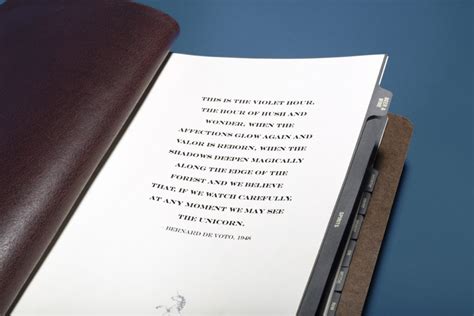 THIS IS THE VIOLET HOUR,
THE HOUR OF HUSH AND
WONDER, WHEN THE
AFFECTIONS GLOW AGAIN AND
VALOR IS REBORN, WHEN THE
SHADOWS DEEPEN MAGICALLY
ALONG THE EDGE OF THE
FOREST AND WE BELIEVE
THAT, IF WE WATCH CAREFULLY,
AT ANY MOMENT WE MAY SEE
THE UNICORN.
BERNARD DE VOTO, 1948
SPIRITS